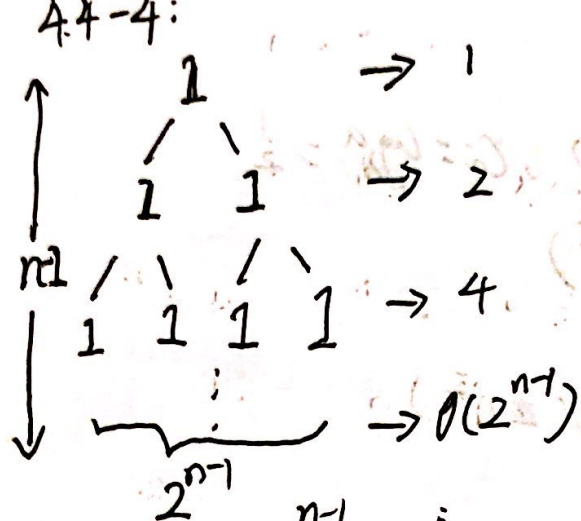 4.4-4:
1 → 1
1 1 → 2
n-1
1 1 1 1 → 4
→ θ(2^{n-1})
2^{n-1}
n-1